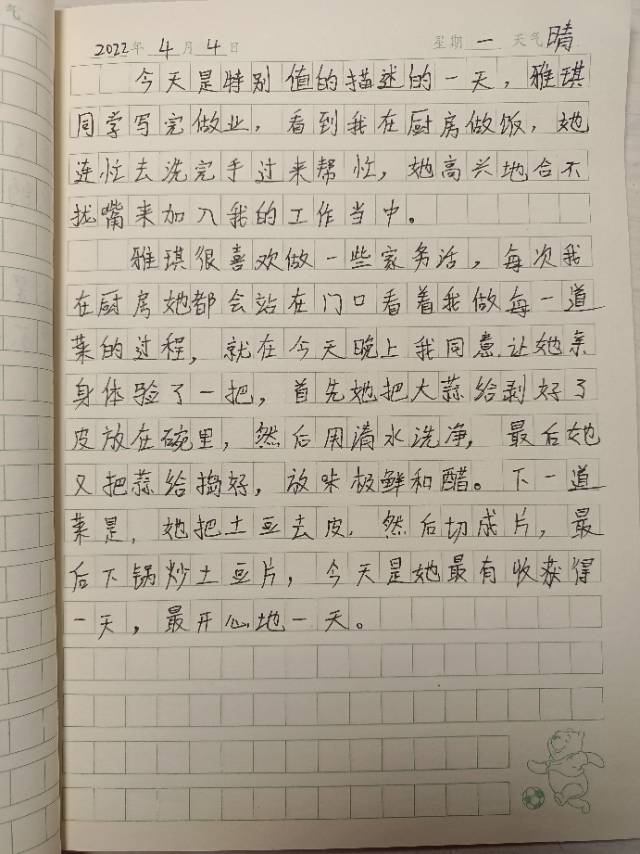 气
2022年 4月 4日 星期 一 天气 晴
今天是特别值的描述的一天，雅琪
同学写完做业，看到我在厨房做饭，她
连忙去洗完手过来帮忙，她高兴地合不
扰嘴来加入我的工作当中。
雅琪很喜欢做一些家务活，每次我
在厨房她都会站在门口看着我做每一道
菜的过程，就在今天晚上我同意让她亲
身体验了一把，首先她把大蒜给剥好了
皮放在碗里，然后用清水洗净，最后她
又把蒜给捣好，放味极鲜和醋。下一道
菜是，她把土豆去皮，然后切成片，最
后下锅炒土豆片，今天是她最有收获得
一天，最开心地一天。